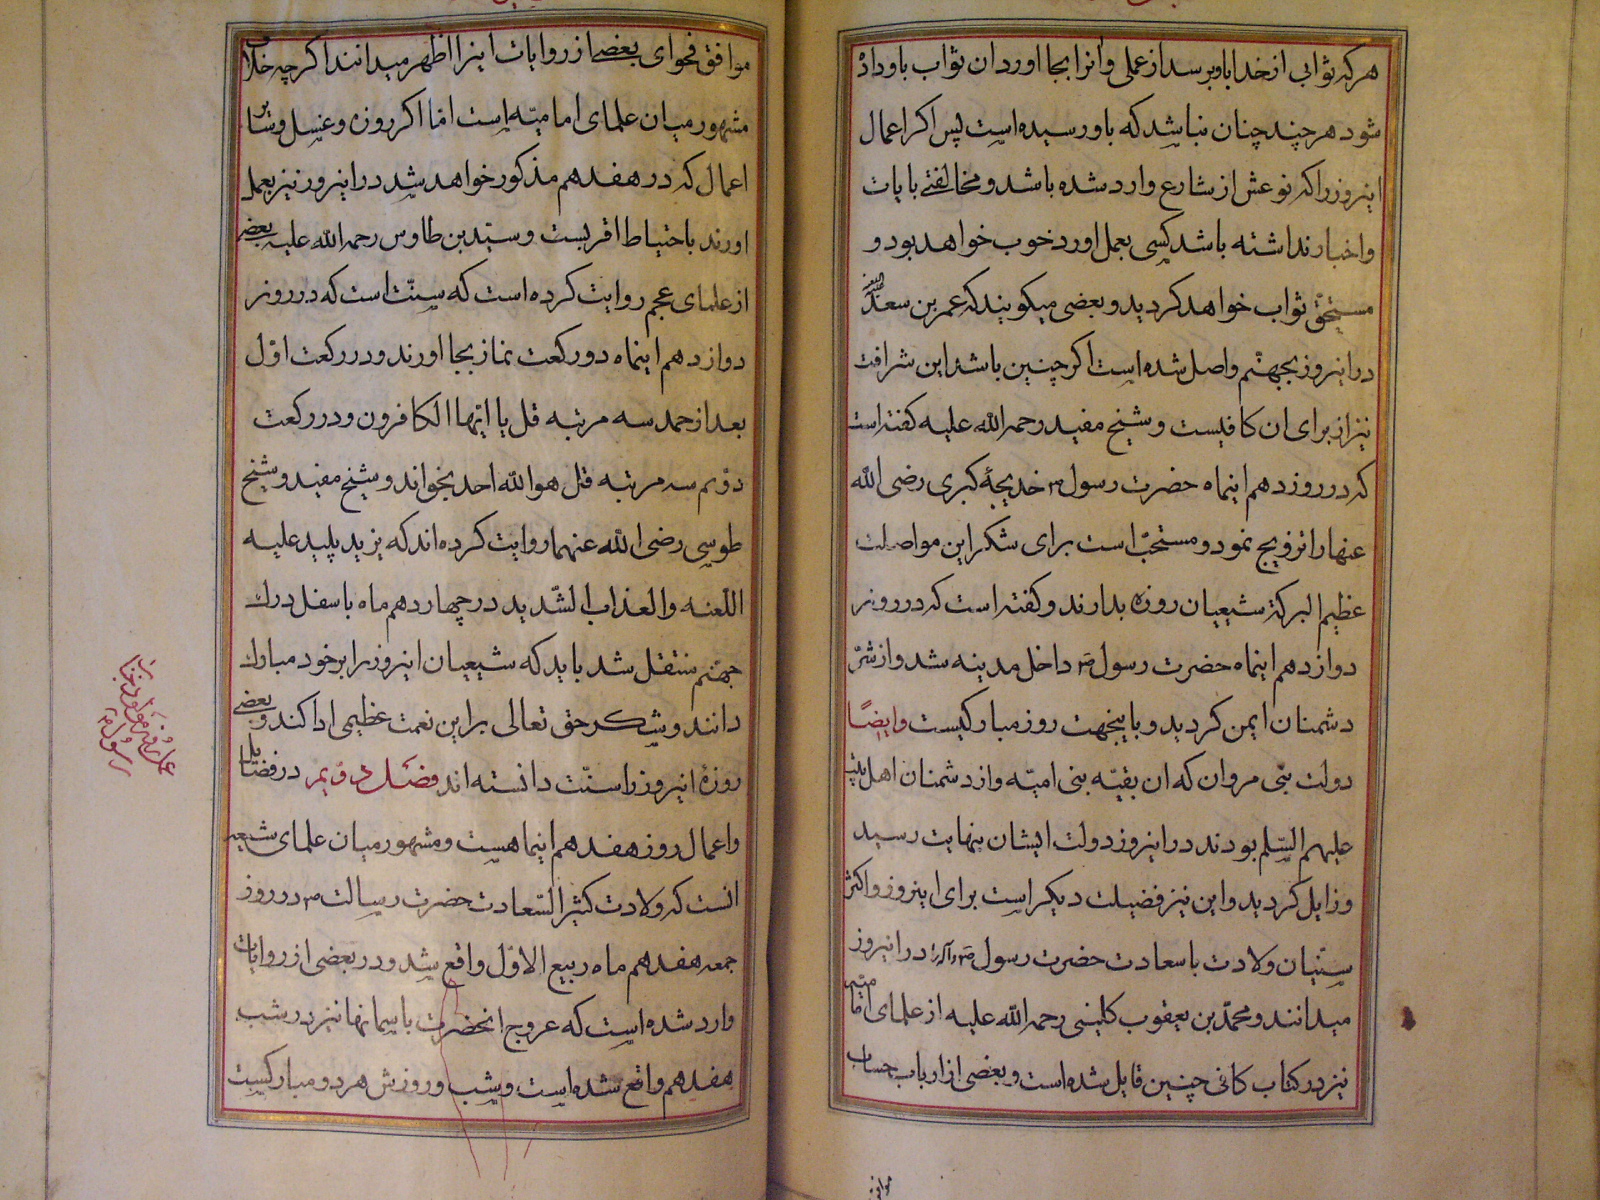 هرکه ثوابی از خدا باو برسد از عملی و انرا بجا اورد ان ثواب باو داده
شود هر چند چنان نباشد که باو رسیده است پس اکر اعمال
اینروز را که نوعش از شارع وارد شده باشد و مخالفتی بایات
و اخبار نداشته باشد کسی بعمل اورد خوب خواهد بود و
مستحق ثواب خواهد کردید و بعضی میکویند که عمر بن سعد
در اینروز بجهنّم واصل شده است اکر چنین باشد این شرافت
نیز از برای ان کافیست و شیخ مفید رحمه الله علیه کفته است
که در روز دهم اینماه حضرت رسول ص خدیجهٔ کبری رضی الله
عنها را تزویج نمود و مستحبّ است برای شکر این مواصلت
عظیم البرکة شیعیان روزه بدارند و کفته است که در روز
دوازدهم اینماه حضرت رسول ص داخل مدینه شد و از شرّ
دشمنان ایمن کردید و باینجهت روز مبارکیست وایضًا
دولت بنی مروان که ان بقیّه بنی امیّه و از دشمنان اهل بیت
علیهم السّلم بودند در اینروز دولت ایشان بنهایت رسید
و زایل کردید و این نیز فضیلت دیکر است برای اینروز و اکثر
سنیّان ولادت باسعادت حضرت رسول ص واله را در اینروز
میدانند و محمّد بن یعقوب کلینی رحمه الله علیه از علمای امامیّه
نیز در کتاب کافی چنین قایل شده است و بعضی از ارباب حساب
موافق
موافق فحوای بعضی از روایات اینرا اظهر میدانند اکرچه خلاف
مشهور میان علمای امامیّه است امّا اکر روزه و غسل و سایر
اعمال که در هفدهم مذکور خواهد شد در اینروز نیز بعمل
اورند باحتیاط اقربست و سیّد بن طاوس رحمه الله علیه بعضی
از علمای عجم روایت کرده است که سنّت است که در روز
دوازدهم اینماه دو رکعت نماز بجا اورند و در رکعت اوّل
بعد از حمد سه مرتبه قل یا ایّها الکافرون و در رکعت
دوّیم سه مرتبه قل هو الله احد بخواند و شیخ مفید و شیخ
طوسی رضی الله عنهما روایت کرده اند که یزید پلید علیه
اللّعنه والعذاب الشّدید در چهاردهم ماه باسفل درک
جهنّم منتقل شد باید که شیعیان اینروز را بر خود مبارک
دانند و شکر حق تعالی بر این نعمت عظیمی ادا کند و بعضی
روزهٔ اینروز را سنّت دانسته اند فصل دوّیم در فضایل
و اعمال روز هفدهم اینماهست و مشهور میان علمای شیعه
انست که ولادت کثیر السّعادت حضرت رسالت ص در روز
جمعه هفدهم ماه ربیع الاوّل واقع شد و در بعضی از روایات
وارد شده است که عروج انحضرت باسمانها نیز در شب
هفدهم واقع شده است و شب و روزش هر دو مبارکست
عمل روز مولود جناب
رسول ص